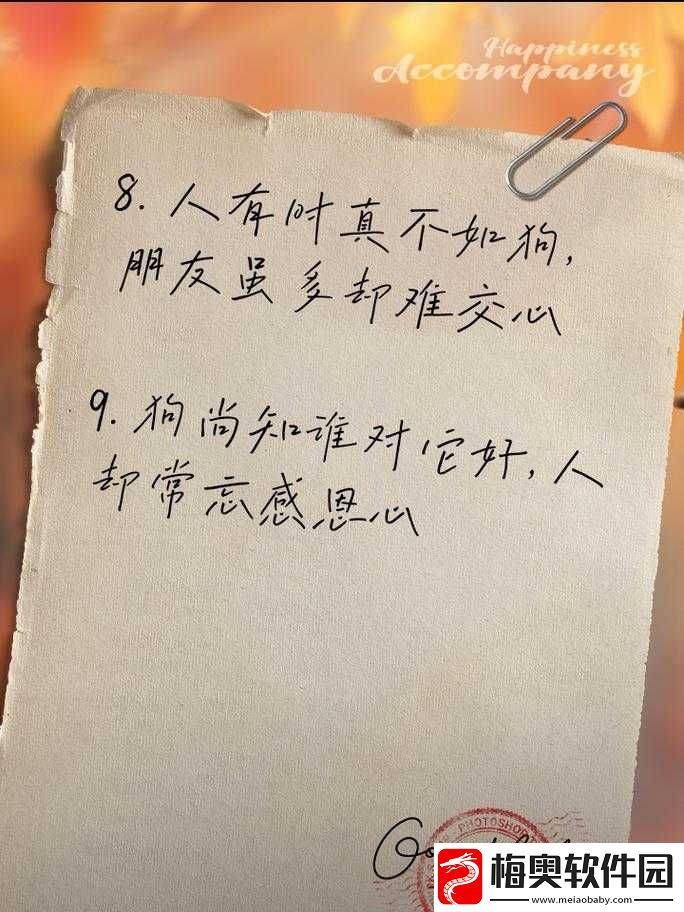 Happiness
Accompany
8. 人有时真不如狗,
朋友虽多却难交心
9. 狗尚知谁对它好, 人
却常忘感恩心
PHOTOSHOP
梅奥软件园
www.meiaobaby.com